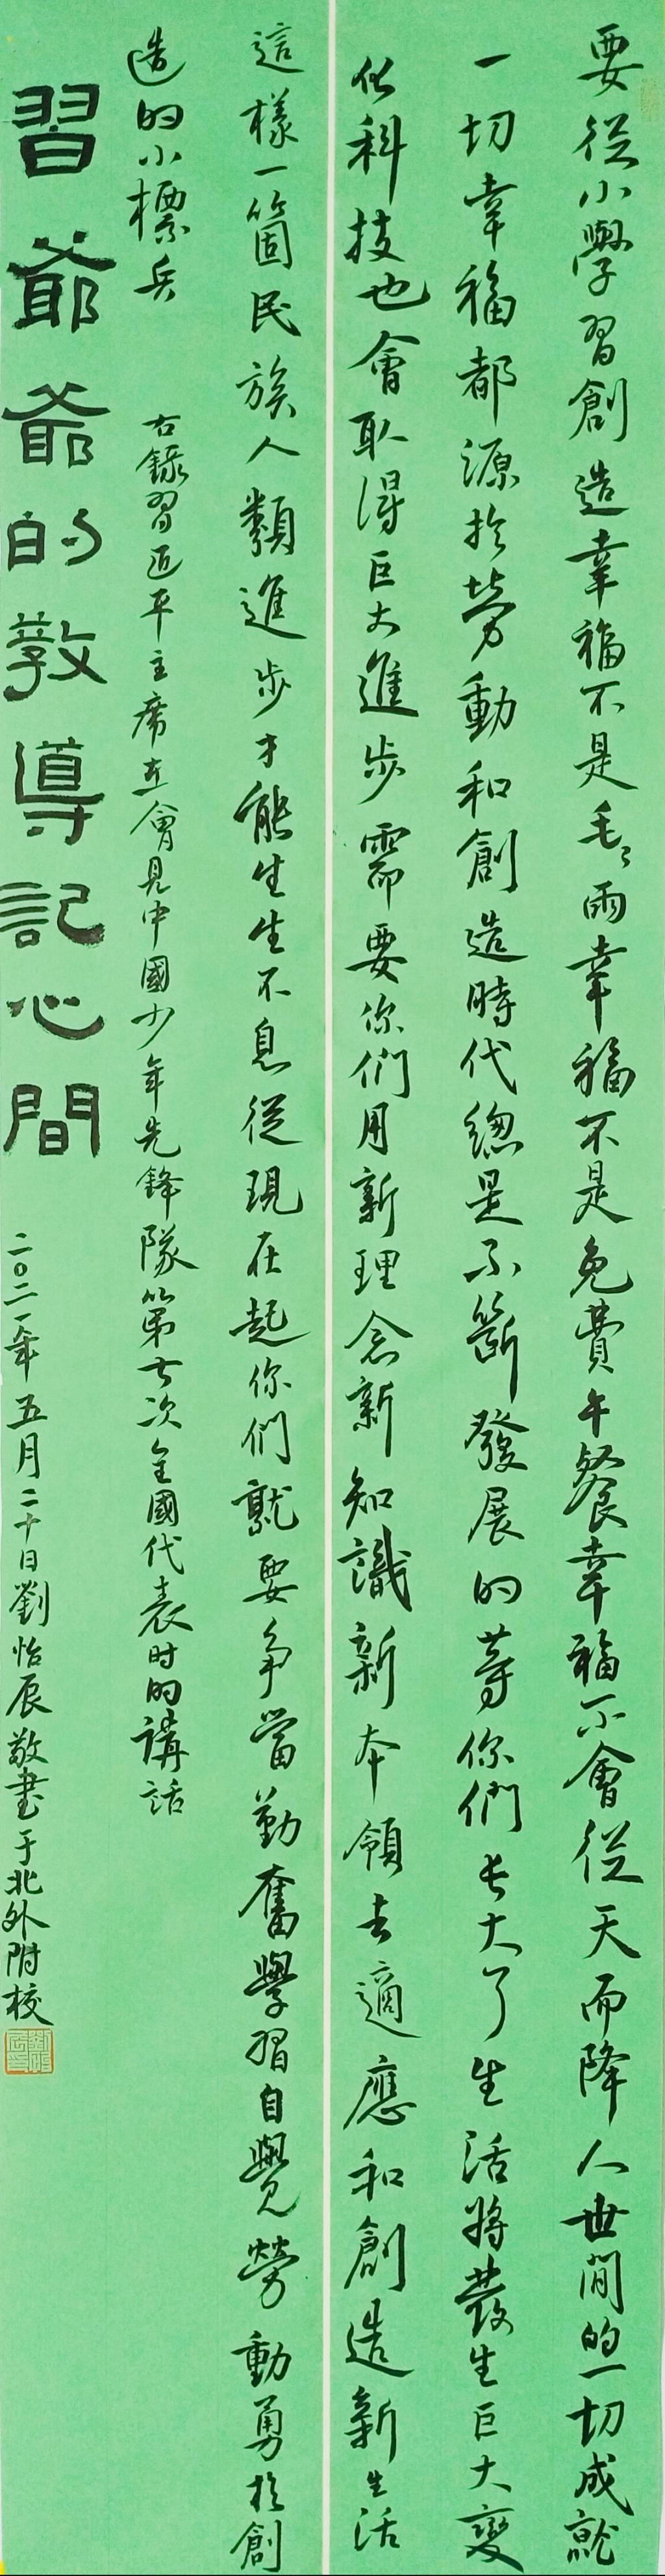 要從小學習創造幸福不是毛毛雨幸福不是免費午餐幸福不會從天而降人世間的一切成就
一切幸福都源於勞動和創造時代總是不斷發展的等你們長大了生活將發生巨大變
化科技也會取得巨大進步需要你們用新理念新知識新本領去適應和創造新生活
這樣一箇民族人類進步才能生生不息從現在起你們就要爭當勤奮學習自覺勞動勇於創
造的小標兵
右錄習近平主席在會見中國少年先鋒隊第七次全國代表时的講話
習爺爺的教導記心間
二〇二一年五月二十日劉怡辰敬書于北外附校